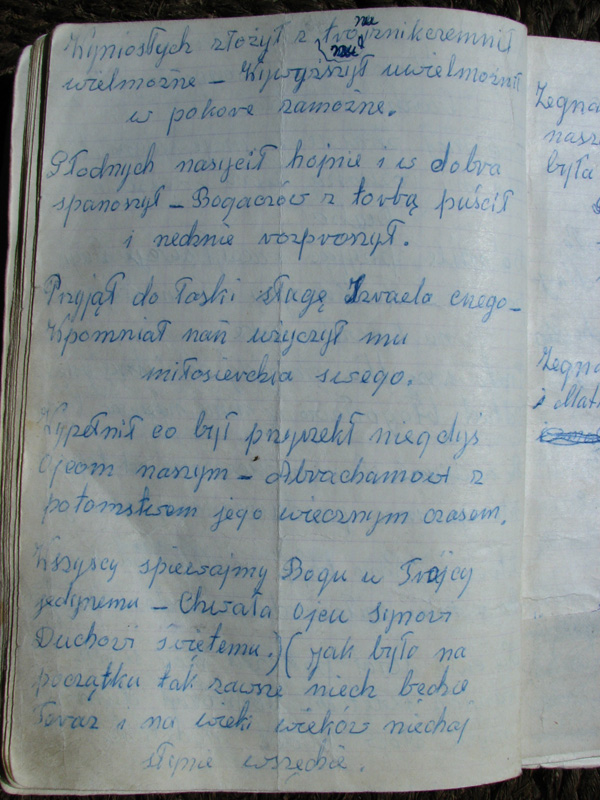 Wyniosłych złożył z tronu znikczemnił
wielmożne – Wywyższył uwielmożnił
w pokorę zamożne.
Głodnych nasycił hojnie i w dobra
spanoszył – Bogaczów z torbą puścił
i nędznie rozproszył.
Przyjął do łaski sługę Izraela cnego –
Wpomniał nań użyczył mu
miłosierdzia swego.
Wypełnił co był przyrzekł niegdyś
Ojcom naszym – Abrachamowi z
potomstwem jego wiecznym czasom.
Wszyscy śpiewajmy Bogu w Trójcy
jedynemu – Chwała Ojcu Synowi
Duchowi świętemu.) ( jak było na
początku tak zawsze niech będzie
Teraz i na wieki wieków niechaj
słynie wszędzie.
Żegna
nasz
była
Żegna
i Mat